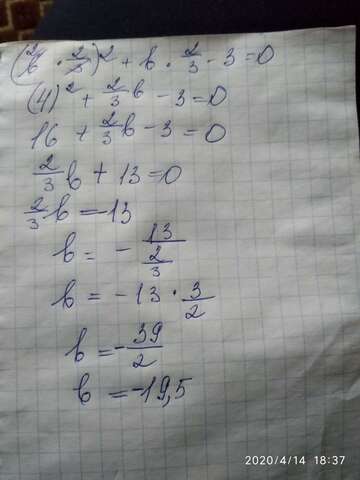 (2/6 · 2/3)² + b · 2/3 - 3 = 0
(4)² + 2/3 b - 3 = 0
16 + 2/3 b - 3 = 0
2/3 b + 13 = 0
2/3 b = -13
b = - 13/(2/3)
b = -13 · 3/2
b = - 39/2
b = -19,5
2020/4/14 18:37